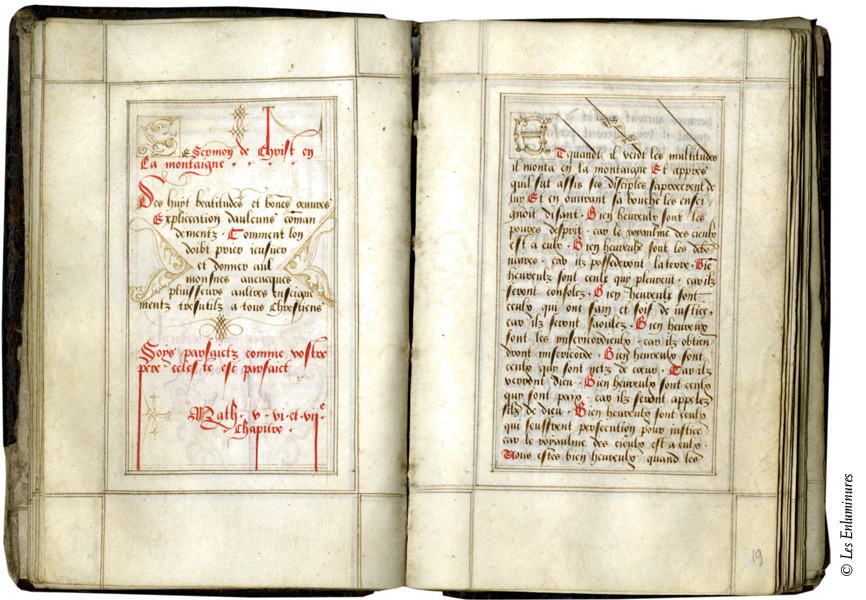 Le Sermon de Christ en
La montaigne
Des huyt beatitudes et bones œuvres
Explication daulcuns coman
dementz. Comment lon
doibt prier ieusner
et donner aul
mosnes avecques
plusieurs aultres Enseigne
mentz tresutilz a tous Chrestiens
Soys parfaictz comme vostre
pere celeste est parfaict
Math. v. vi. et. vii.e
Chapitre.
ET quand il veidt les multitudes
il monta en la montaigne Et appres
quil fut assis ses disciples sapprocerent de
luy Et en ouvrant sa bouche les ensei
gnoit disant. Bien heureux sont les
povres desprit. car le royaulme des cieulx
est a eulx. Bien heureulx sont les debo
nnaires. car ilz possederont la terre. Bie
heureulx sont ceulx qui pleurent car ilz
seront consolez. Bien heureulx sont
ceulx qui ont fain et soif de iustice.
car ilz seront saoulez. Bien heureux
sont les misericordieulx car ilz obtien
dront misericorde. Bien heureulx sont
ceulx qui sont netz de cœur. Car ilz
verront dieu. Bien heureulx sont ceulx
qui sont paix. car ilz seront appelez
filz de dieu. Bien heureulx sont ceulx
qui seuffrent persecution pour iustice
car le royaulme des cieulx est a eulx.
Vous estes bien heureulx quand les
19
© Les Enluminures